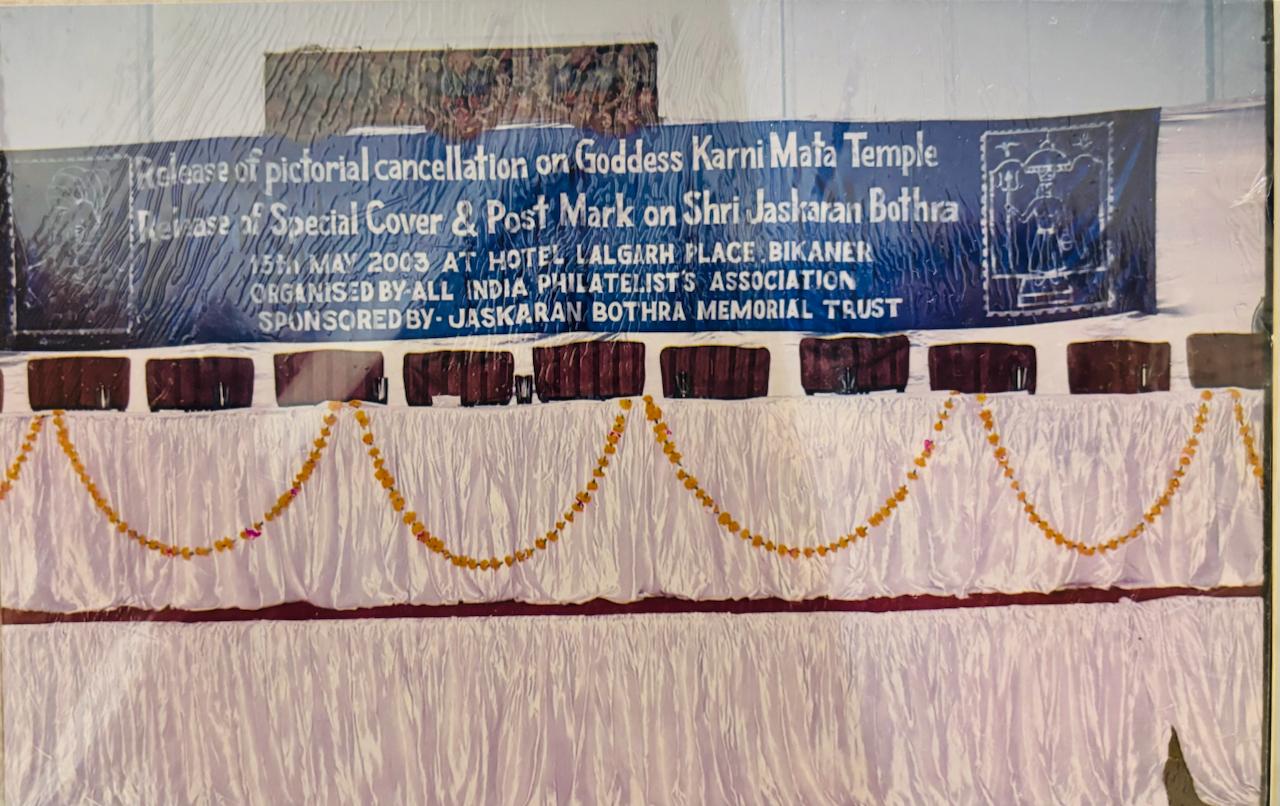 Release of pictorial cancellation on Goddess Karni Mata Temple
Release of Special Cover & Post Mark on Shri Jaskaran Bothra
15th MAY 2003 AT HOTEL LALGARH PLACE. BIKANER
ORGANISED BY-ALL INDIA PHILATELIST'S ASSOCIATION
SPONSORED BY- JASKARAN BOTHRA MEMORIAL TRUST